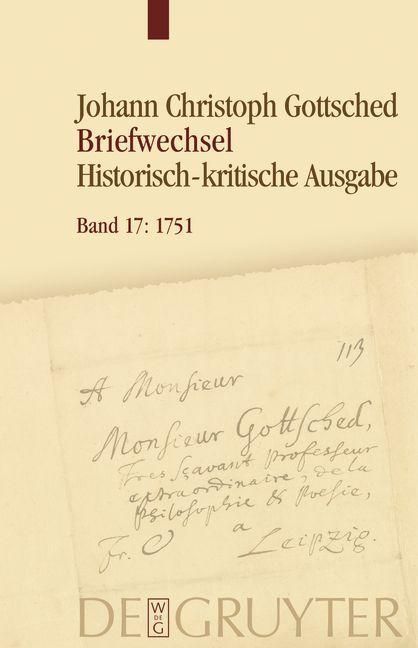 Johann Christoph Gottsched
Briefwechsel
Historisch-kritische Ausgabe
Band 17: 1751
113
A Monsieur
Monsieur Gottsched,
Tres sçavant Professeur
extraordinaire, de la
Philosophie & Poesie,
Fr.
a
Leipzig.
DE GRUYTER
W
DE
G